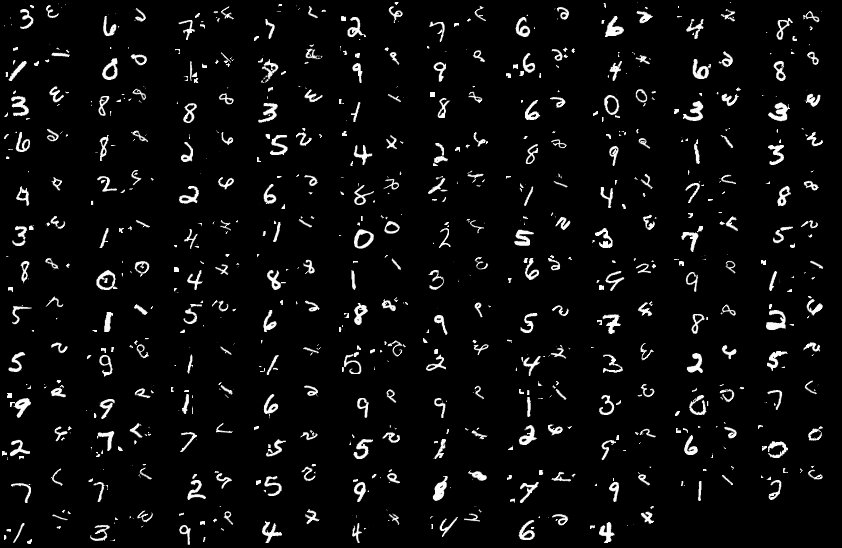 3 6 7 7 2 7 6 6 4 8
1 0 1 8 9 9 6 4 6 8
3 8 8 3 1 8 6 0 3 3
6 8 2 5 4 2 8 9 1 3
4 2 2 6 8 2 1 4 7 8
3 1 4 1 0 2 5 3 7 5
8 0 4 8 1 3 6 9 1
5 1 5 6 8 9 5 7 8 2
5 9 1 1 5 2 4 3 2 5
9 9 1 6 9 9 1 3 0 7
2 7 7 5 5 1 2 9 6 0
7 7 2 5 9 8 7 9 1 2
1 3 9 4 4 4 6 4